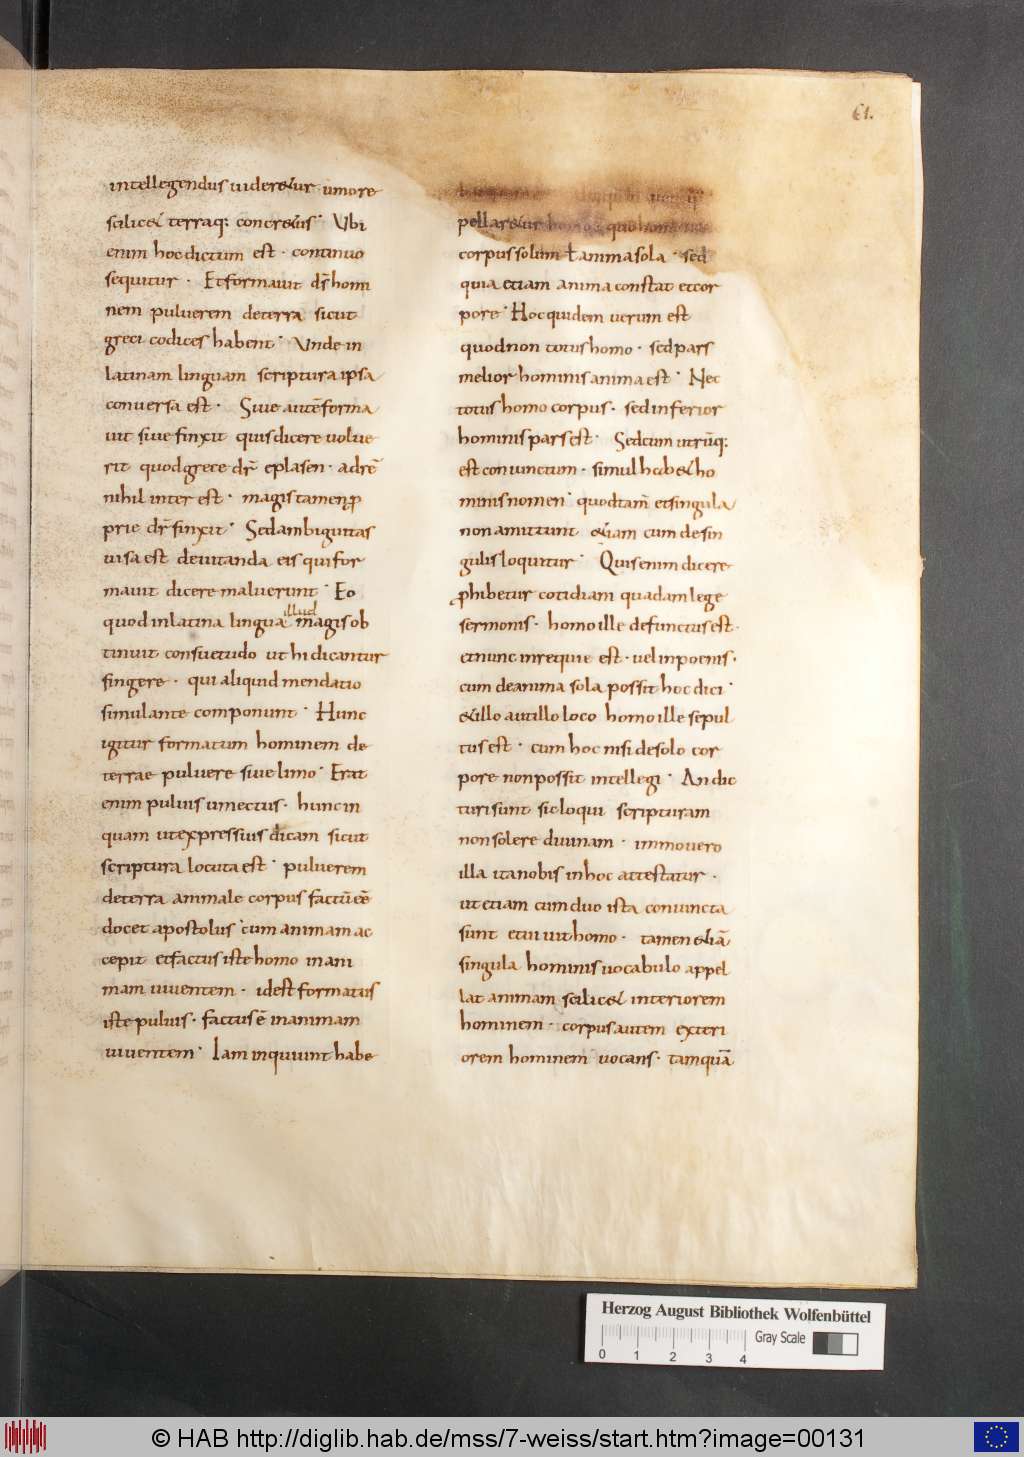 61.
intellegendus uideretur umore
scilicet terraq: concretus· Ubi
enim hoc dictum est· continuo
sequitur· Et formauit dr̄ homi
nem puluerem de terra sicut
greci codices habent· Unde in
latinam linguam scriptura ipsa
conuersa est· Siue autē forma
uit siue finxit quis dicere uolue
rit quod grece dr̄ eplasen· ad rē
nihil inter est· magis tamen ꝓ
prie dr̄ finxit· Sed ambiguitas
uisa est deuitanda eis qui for
mauit dicere maluerunt· Eo
quod in latina lingua illud magis ob
tinuit consuetudo ut hi dicantur
fingere· qui aliquid mendatio
simulante componunt· Hunc
igitur formatum hominem de
terrae puluere siue limo· Erat
enim puluis umectus· hunc in
quam ut expressius dicam sicut
scriptura locuta est· puluerem
de terra animale corpus factū eē
docet apostolus cum animam ac
cepit et factus iste homo in ani
mam uiuentem· id est formatus
iste puluis· factus ē in animam
uiuentem· Iam inquiunt habe
pellaretur homo quo
corpus solum ł anima sola· sed
quia etiam anima constat et cor
pore· Hoc quidem uerum est
quod non totus homo· sed pars
melior hominis anima est· Nec
totus homo corpus· sed inferior
hominis pars est· Sed cum utrūq:
est coniunctum· simul habet ho
minis nomen· quod tam̄ et singula
non amittunt etiam cum de sin
gulis loquitur· Quis enim dicere
ꝓhibetur cotidiam quadam lege
sermonis· homo ille defunctus est·
et nunc in requie est· uel in poenis·
cum de anima sola possit hoc dici·
et illo aut illo loco homo ille sepul
tus est· cum hoc nisi de solo cor
pore non possit intellegi· An dic
turi sunt sic loqui scripturam
non solere diuinam· immo uero
illa ita nobis in hoc attestatur·
ut etiam cum duo ista coniuncta
sunt et uiuit homo· tamen etiā
singula hominis uocabulo appel
lat animam scilicet interiorem
hominem· corpus autem exteri
orem hominem uocans· tamquā
Herzog August Bibliothek Wolfenbüttel
Gray Scale
0 1 2 3 4
© HAB http://diglib.hab.de/mss/7-weiss/start.htm?image=00131